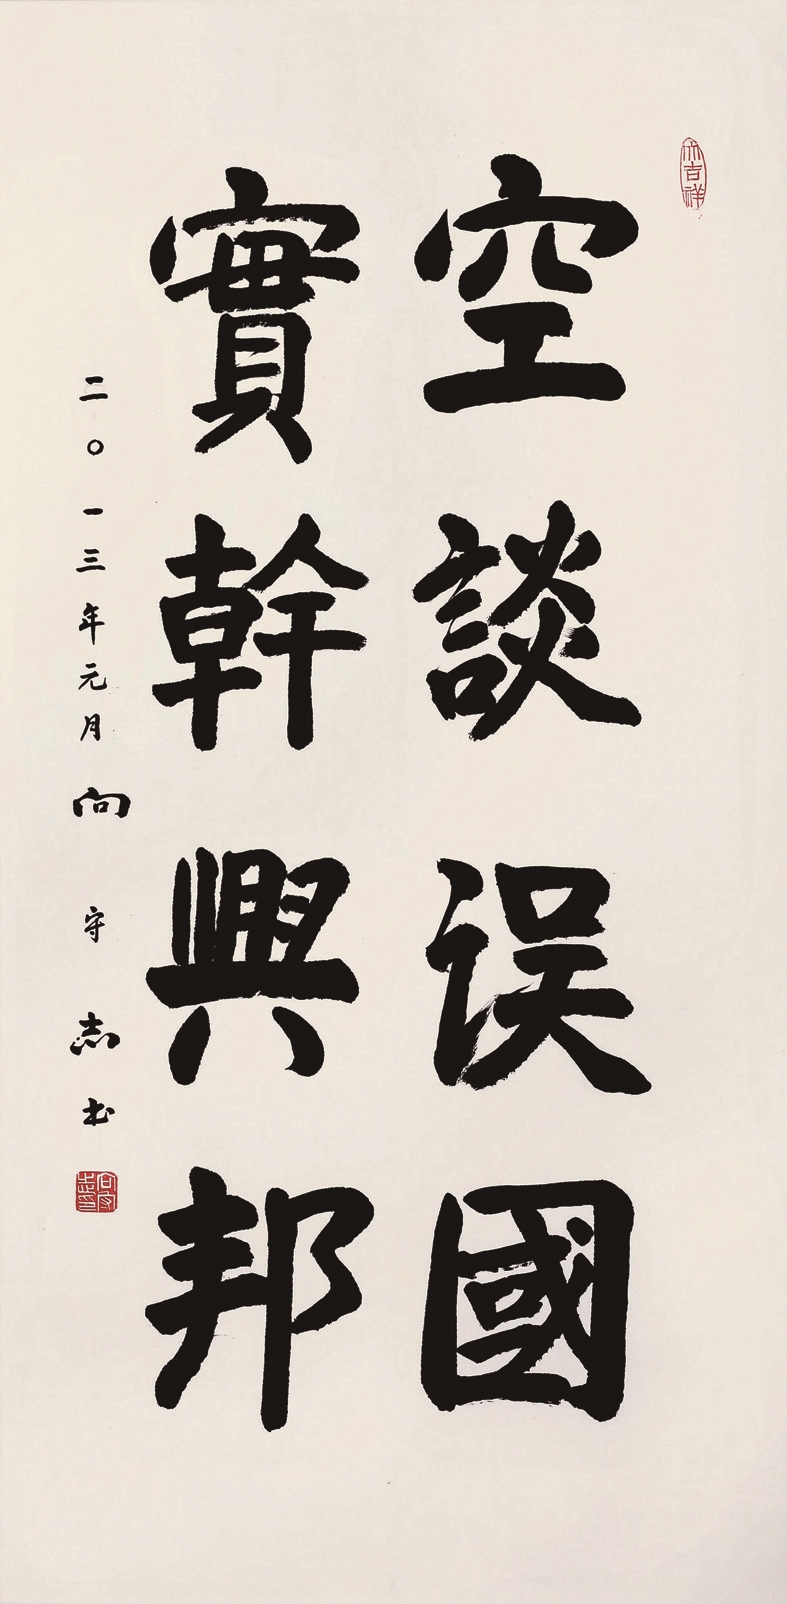 大吉祥
空談误國
實幹興邦
二〇一三年元月向守志书
向守志印